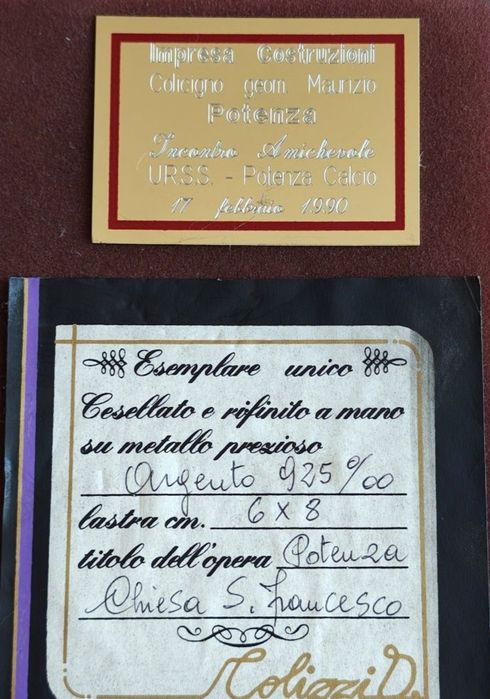 Impresa Costruzioni
Colicigno geom. Maurizio
Potenza
Incontro Amichevole
U.R.S.S. - Potenza Calcio
17 febbraio 1990
Esemplare unico
Cesellato e rifinito a mano
su metallo prezioso
Argento 925‰
lastra cm. 6 x 8
titolo dell'opera Potenza
Chiesa S. Francesco